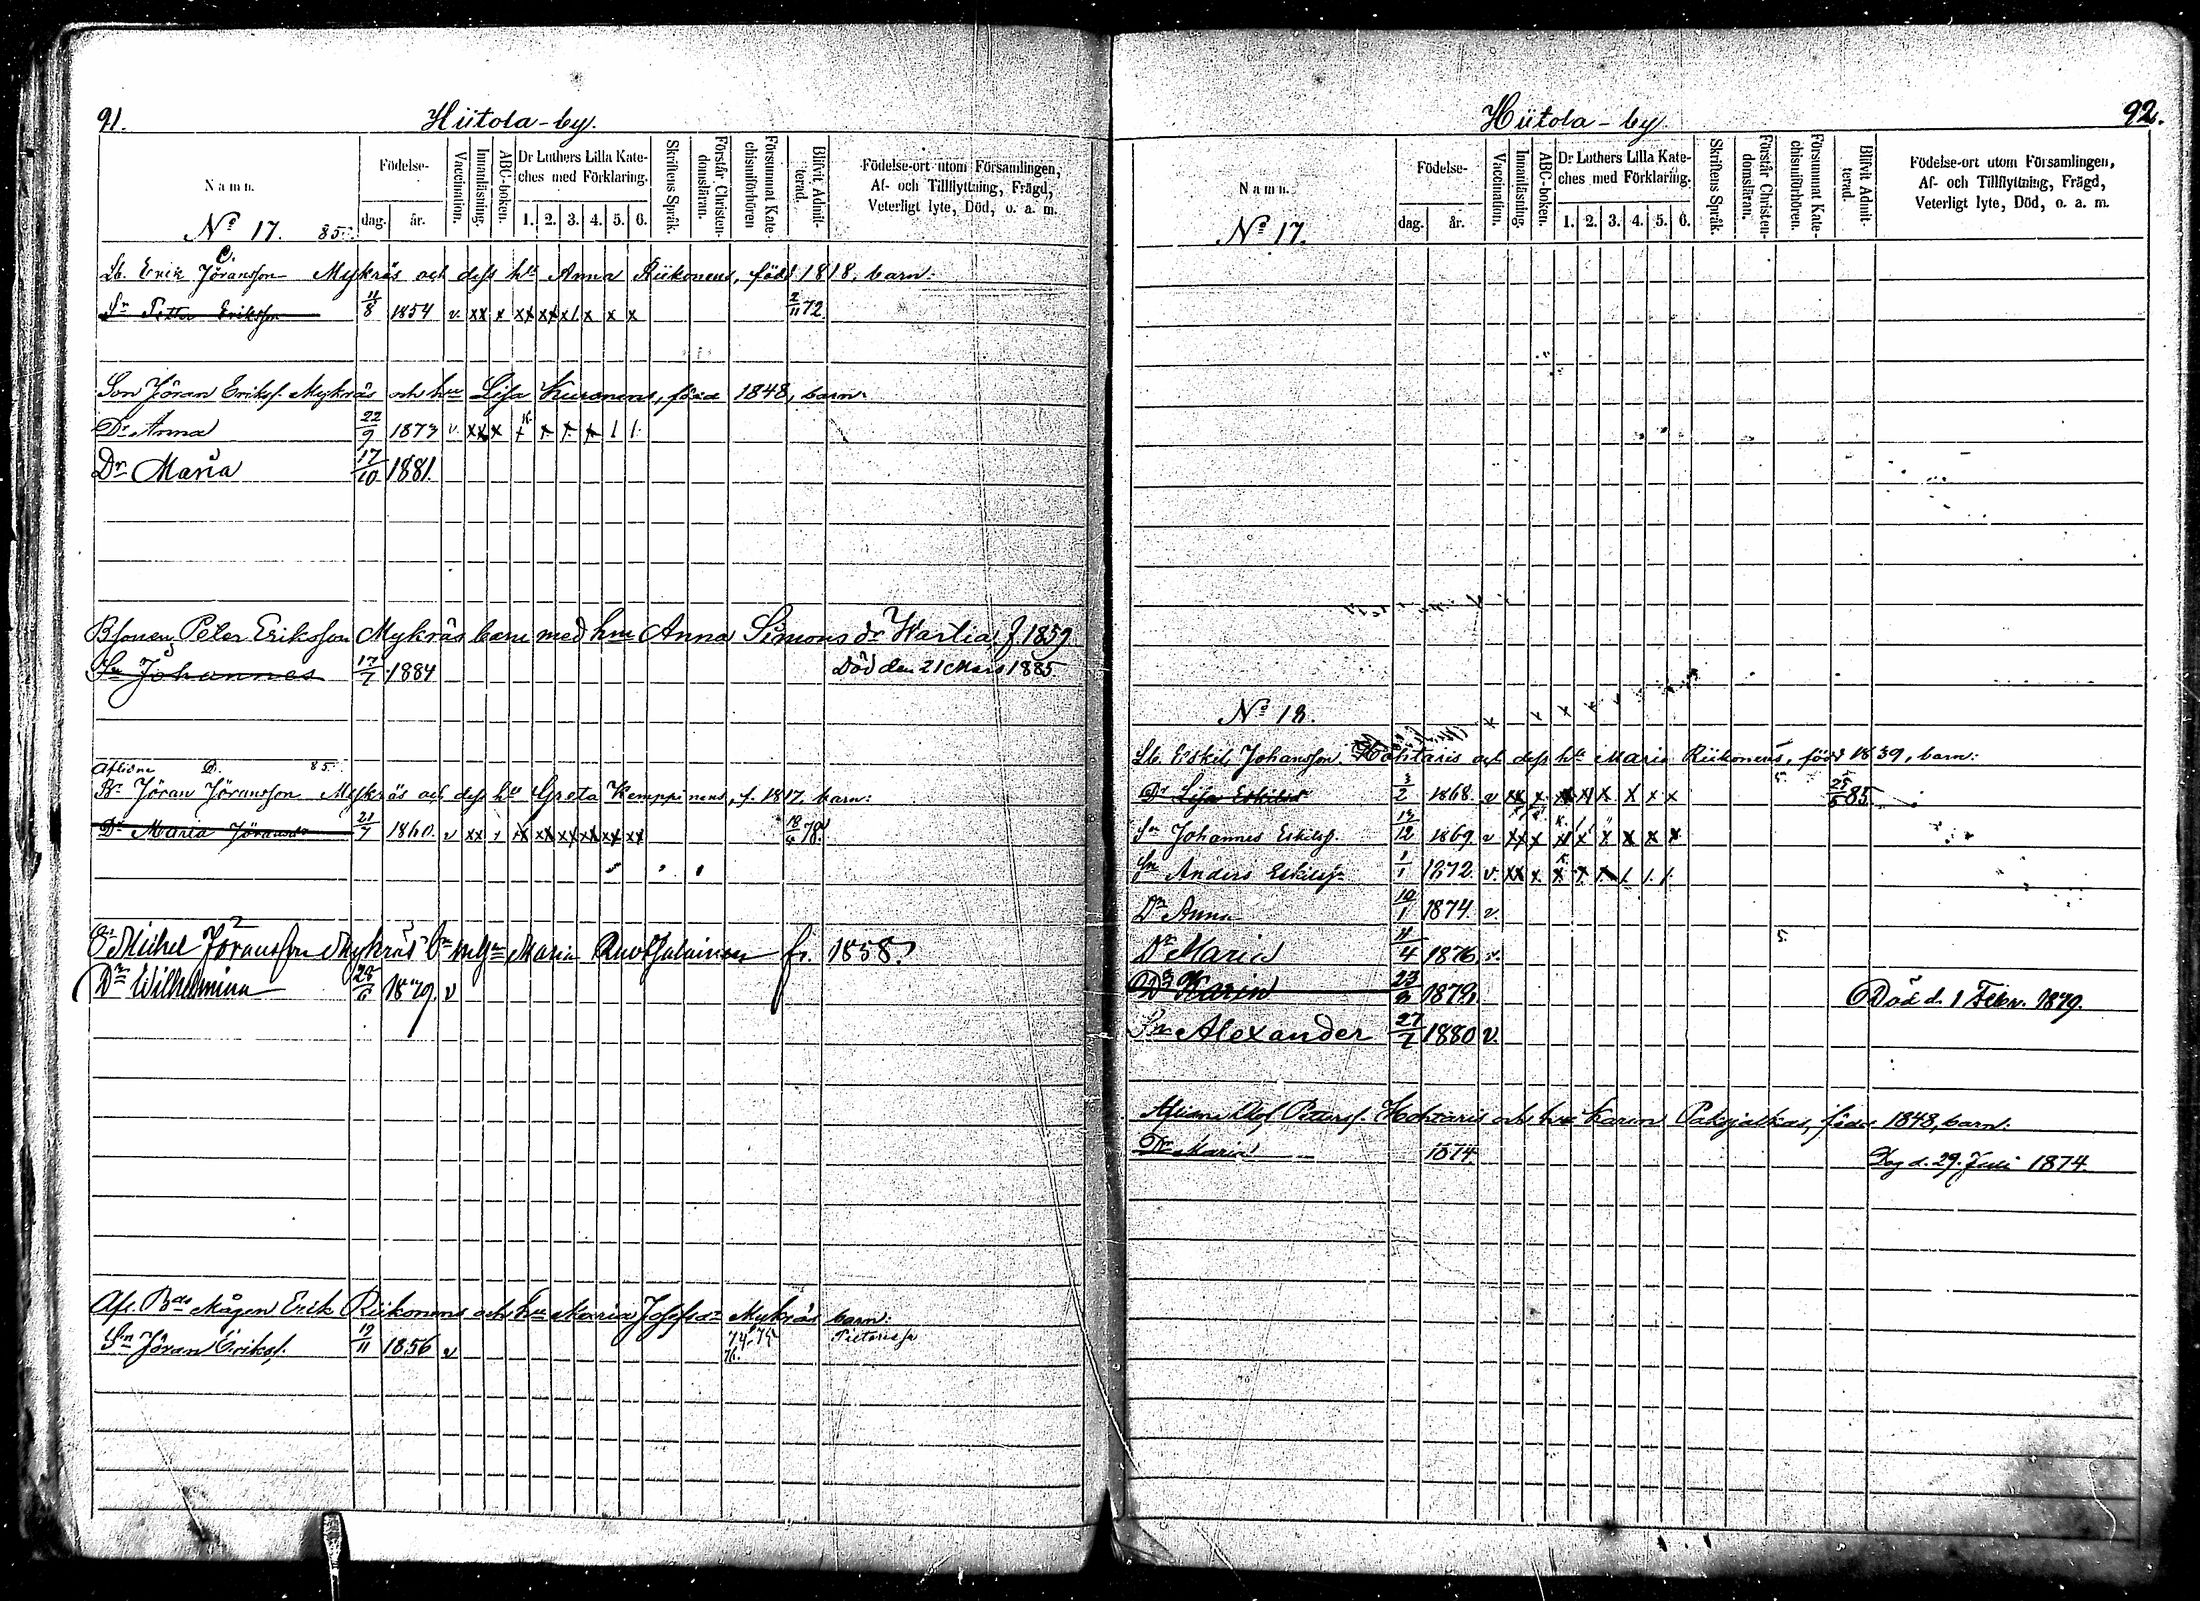 91.
Hiitola-by.
Namn.
Födelse-
dag. år.
Vaccination.
Innanläsning.
ABC-boken.
Dr Luthers Lilla Kate-
ches med Förklaring.
1. 2. 3. 4. 5. 6.
Skriftens Språk.
Förstår Christen-
domsläran.
Försummat Kate-
chismiförhören
Blifvit Admit-
terad.
Födelse-ort utom Församlingen,
Af- och Tillflyttning, Frägd,
Veterligt lyte, Död, o. a. m.
No 17. 85.
C.
Lb. Erik Jöransson Mykräs och dess hu Anna Riikonens, född 1818, barn.
Sn Petter Eriksson 11/8 1854 v. xx x xx xx x/. x x x 2/11 72.
Son Jöran Eriksf. Mykräs och hu Lisa Kuronens, född 1848, barn.
Dr Anna 22/9 1873 v. xx x x x x x / /.
Dr Maria 17/10 1881.
Bsonen Peter Eriksson Mykräs barn med hu Anna Simons dr Wartia f. 1859.
Sn Johannes 17/7 1884 Död den 21 Mars 1885
Aflidne D. 85.
Br Jöran Jöransson Mykräs och dess hu Greta Kemppinens, f. 1817, barn:
Dr Maria Jöransdr 21/7 1860. v xx x xx xx xx xx xx xx 18/6 78.
2
Br Michel Jöransson Mykräs bn m hu Maria Ruotsalainen f. 1858.
Dr Wilhelmina 28/6 1879. v
Afl. Bds Mågen Erik Riikonens och hu Maria Josefsdr Mykräs barn:
Sn Jöran Eriksf. 19/11 1856 v 74-75 76.
92.
Hiitola-by.
Namn.
Födelse-
dag. år.
Vaccination.
Innanläsning.
ABC-boken.
Dr Luthers Lilla Kate-
ches med Förklaring.
1. 2. 3. 4. 5. 6.
Skriftens Språk.
Förstår Christen-
domsläran.
Försummat Kate-
chismiförhören.
Blifvit Admit-
terad.
Födelse-ort utom Församlingen,
Af- och Tillflyttning, Frägd,
Veterligt lyte, Död, o. a. m.
No 17.
No 18.
Lb. Eskil Johansson Hohtaris och dess hu Maria Riikonens, född 1839, barn:
Dr Lisa Eskilsdr 3/2 1868. v xx x. x x x x x x 5. 25/5 85.
Sn Johannes Eskilsf. 13/12 1869. v xx x x x x x x x
Sn Anders Eskilsf. 1/1 1872. v. xx x. x /. /. /. /. /.
Dr Anna 10/1 1874. v.
Dr Maria 11/4 1876. v. 5.
Dr Karin 23/3 1879. Död d. 1 Febr. 1879.
Sn Alexander 27/7 1880 v.
Aflidne Olof Petersf. Hohtaris och hu Karin Paksjalkas, född 1848, barn:
Dr Maria 1874. Dog d. 29. Juli 1874